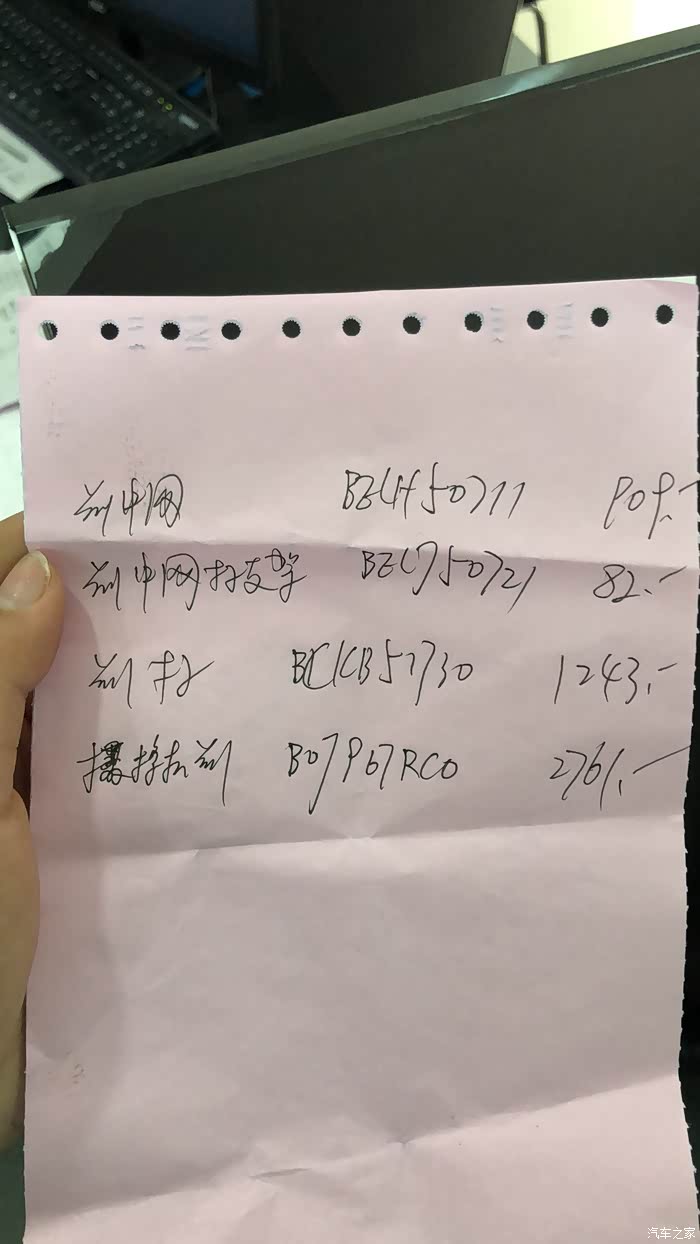 前中网 BECH50711 909.-
前中网打支架 BEC750721 82.-
前打 BCKB51730 1243.-
前 B07P67RC0 2761.-
汽车之家